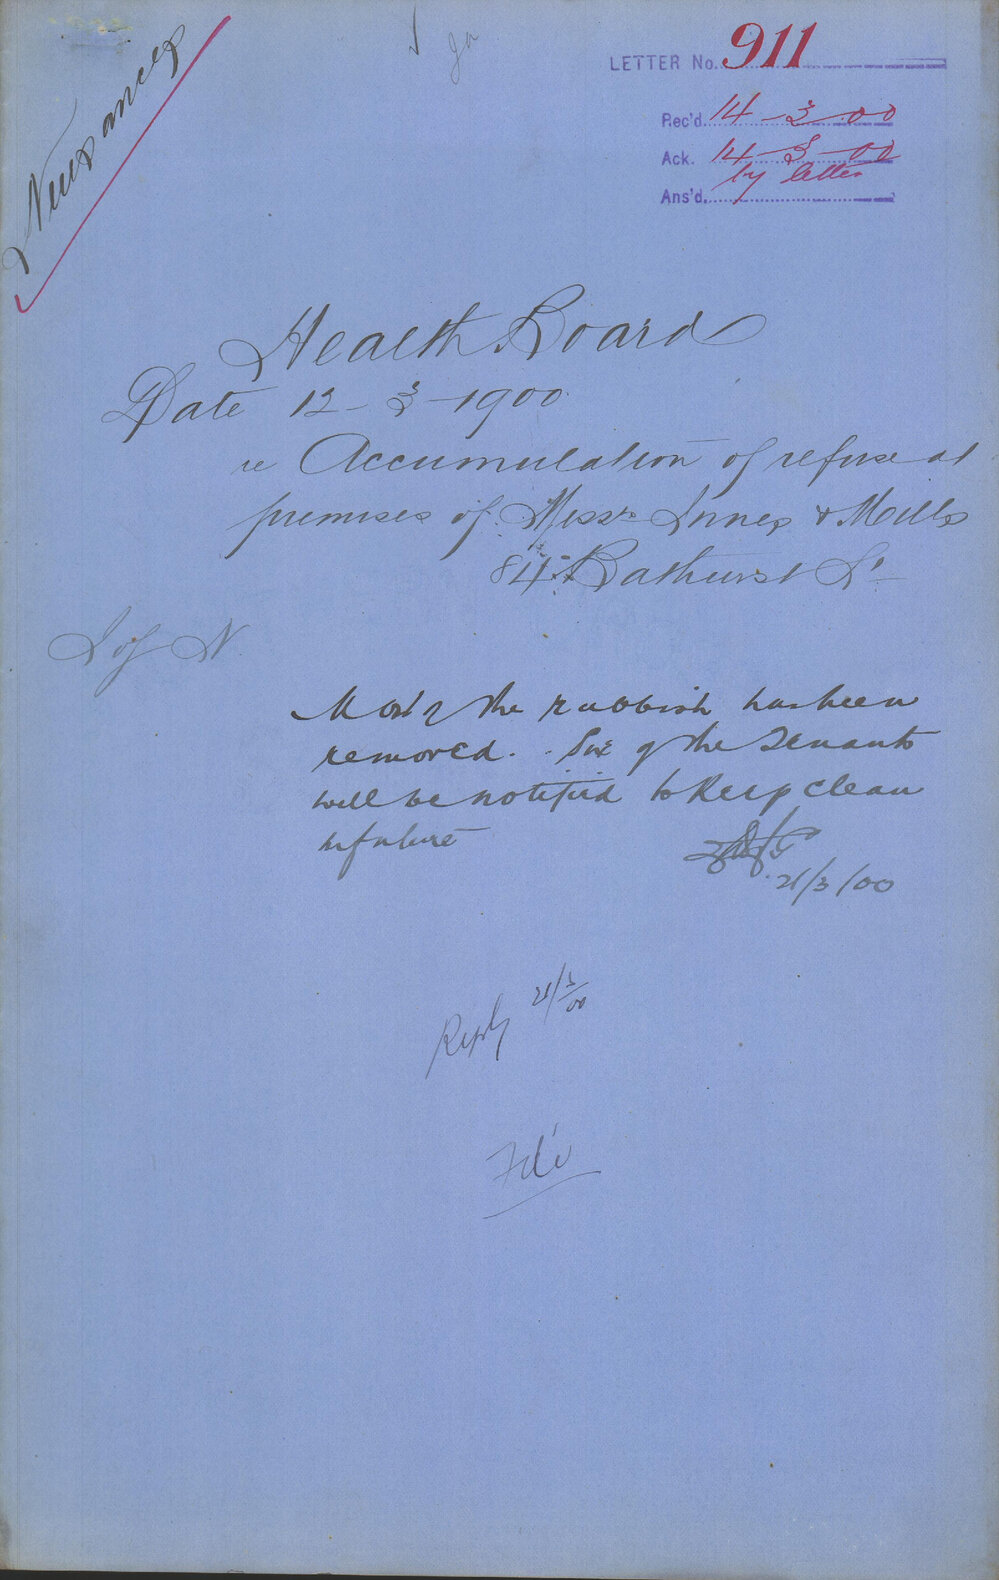 Nuisances
LETTER No. 911
Rec'd. 14-3-00
Ack. 14-3-00
by letter
Ans'd.
Health Board
Date 12-3-1900
re Accumulation of refuse at
premises of Messrs Innes & Mills
84 Bathurst St
I of N
Most of the rubbish has been
removed. Six of the Tenants
will be notified to keep clean
in future
21/3/00
Reply 21/3/00
File